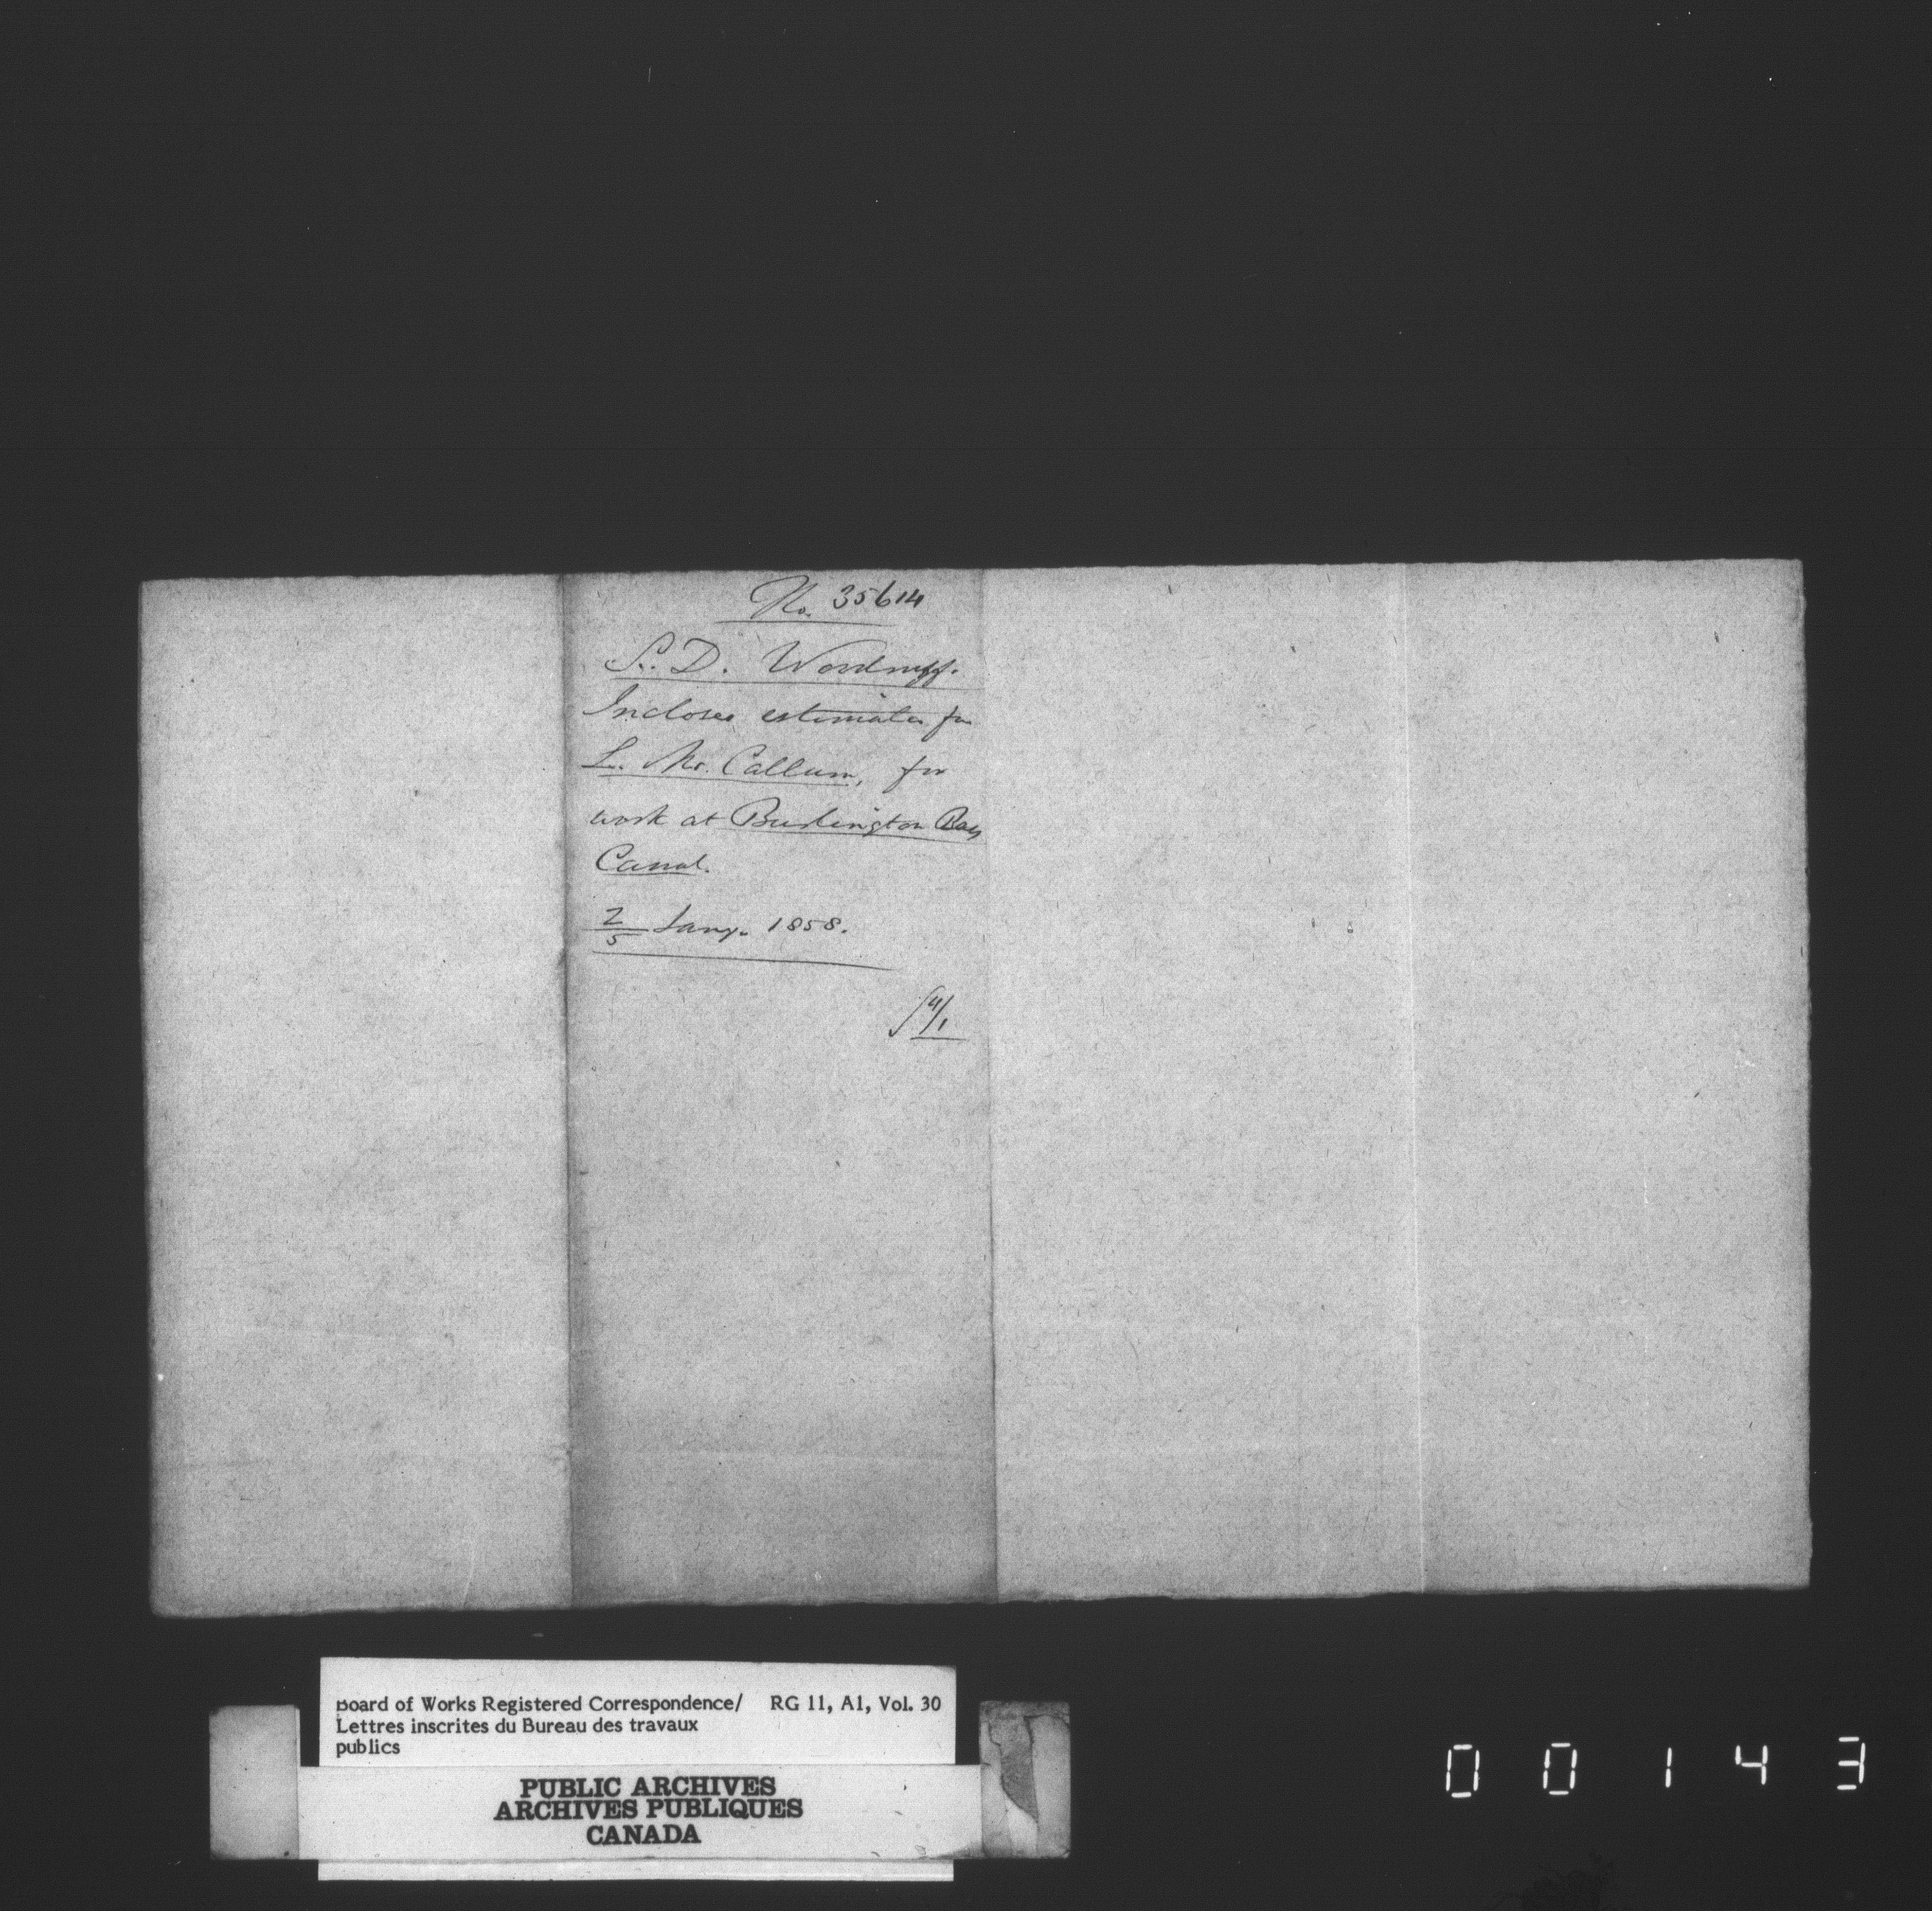 No. 35614
S. D. Woodruff.
Incloses estimates for
L. Mc. Callum, for
work at Burlington Bay
Canal.
2/5 Jany. 1858.
4/1
Board of Works Registered Correspondence/ RG 11, A1, Vol. 30
Lettres inscrites du Bureau des travaux
publics
PUBLIC ARCHIVES
ARCHIVES PUBLIQUES
CANADA
00143